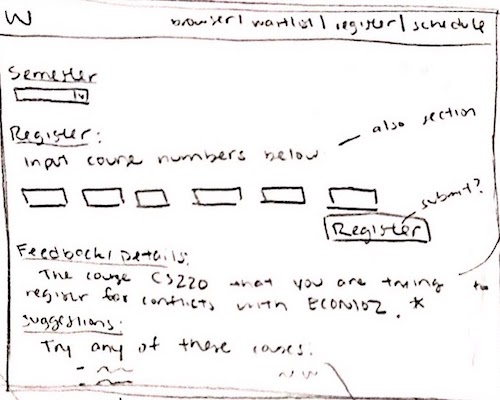 W browser/ waitlist/ register/ schedule
Semester
Register:
input course numbers below
also section
submit?
Register
Feedback/Details:
The course CS220 that you are trying to
register for conflicts with ECON102. *
suggestions:
Try any of these courses: